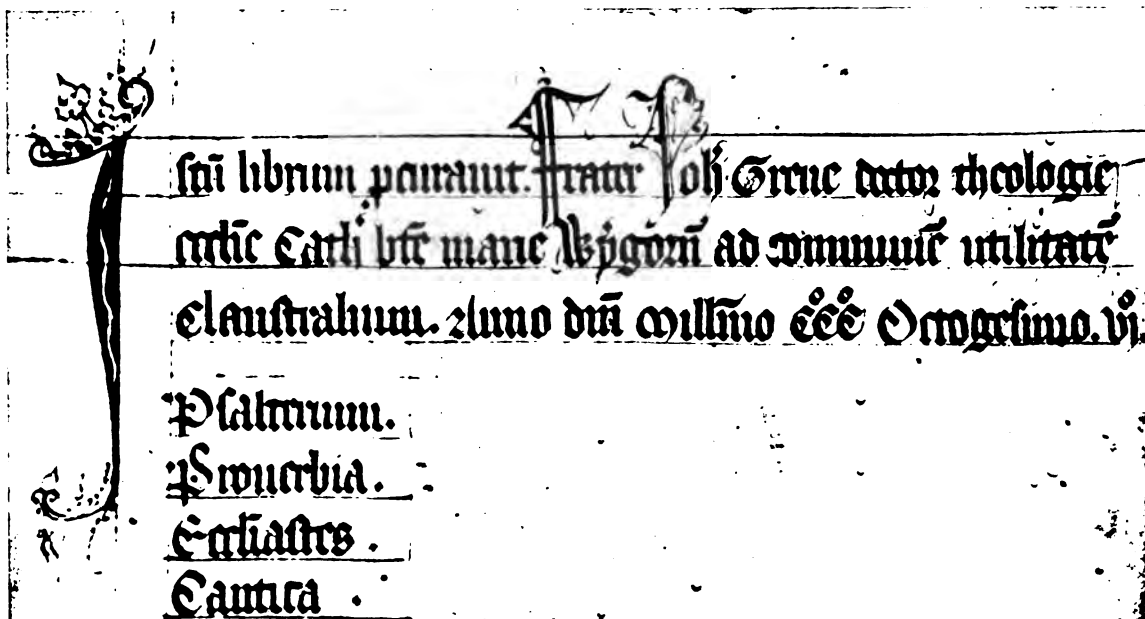 Istū librum pcurauit. Frater Joħ Grene doctor theologie
eccl̄ie Cath bt̄e marie Wygorn̄ ad commune͞ utilitatē
Claustralium. Anno dn̄i Mill̄mo CͦCͦC Octogesimo. vi.
Psalterium.
Prouerbia.
Eccl̄iastes.
Cantica.